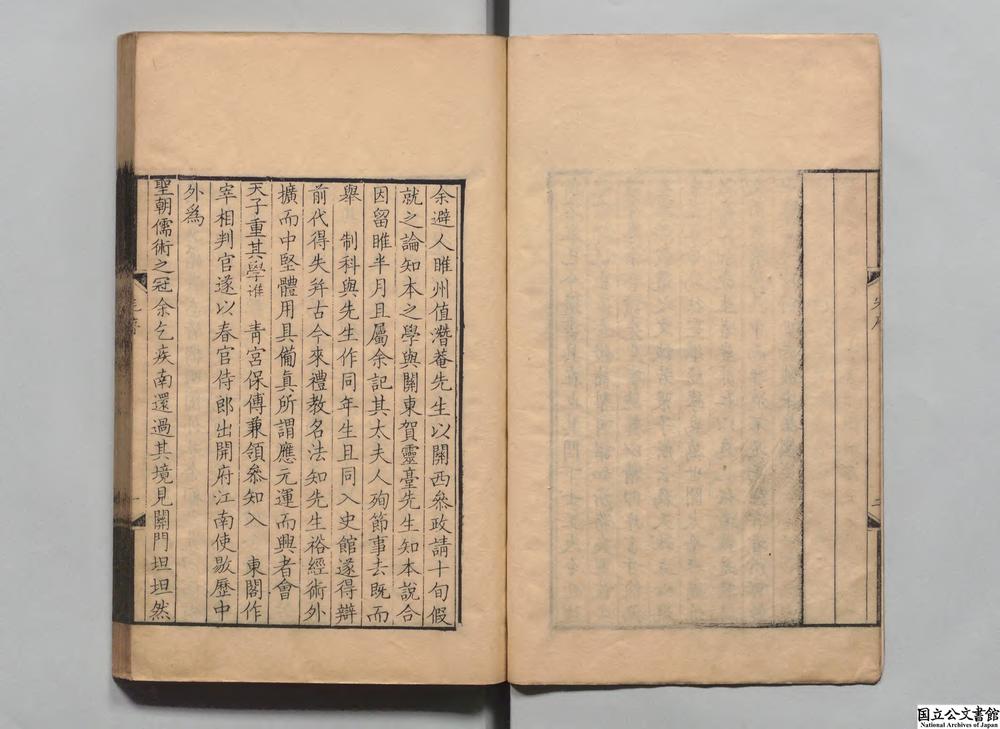 余避人睢州值潛菴先生以關西叅政請十旬假
就之論知本之學與關東賀靈臺先生知本說合
因留睢半月且屬余記其太夫人殉節事去既而
舉　制科與先生作同年生且同入史館遂得辯
前代得失并古今來禮教名法知先生裕經術外
擴而中堅體用具備眞所謂應元運而興者會
天子重其學進　青宮保傅兼領叅知入　東閣作
宰相判官遂以春官侍郎出開府江南使敭歷中
外爲
聖朝儒術之冠余乞疾南還過其境見關門坦坦然
国立公文書館
National Archives of Japan